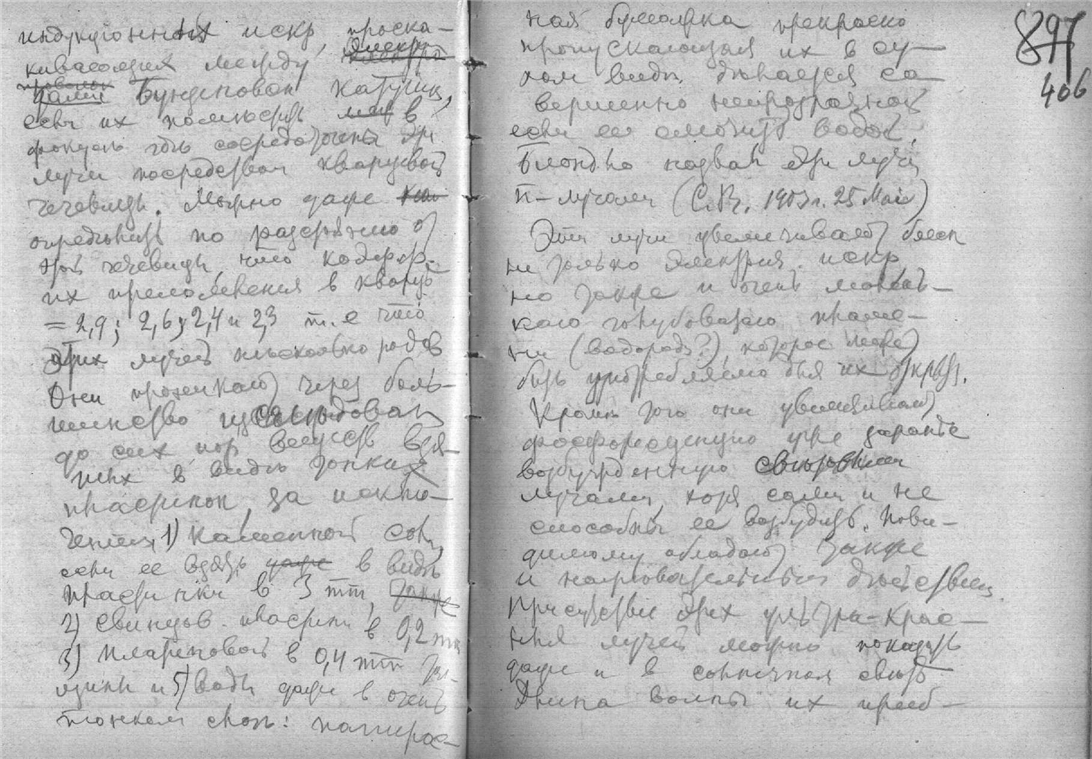 индукціонныхъ искр, проска-
кивающих между электро
Бунзеновой катушц,
если их помѣстить в
фокусѣ гдѣ сосредоточены эти
лучи посредством кварцевой
чечевицы. Можно даже
опредѣлить по разстоянію от
этой чечевицы, что коэфф.
их преломления в кварцѣ
= 2,9; 2,6; 2,4 и 2,3 т.е что
этих лучей нѣсколько родов
Они проникают через боль-
шинство изслѣдован
до сих пор веществ взя-
тых в видѣ тонких
пластинок, за исклю-
чением 1) каменной соли,
если ее взять даже в видѣ
пластинки в 3 mm,
2) свинцов. пластин в 0,2 mm
3) платиновой в 0,4 mm тол-
щины и 5) воды даже в очень
тонком слоѣ: папирос-
ная бумажка прекрасно
пропускающая их в су-
хом видѣ, дѣлается со
вершенно непрозрачной
если ее смочить водой
Блондло назвал эти лучи
n-лучами (C.R. 1903 г. 25 Май)
Эти лучи увеличивают блеск
не только электрич. искр
но также и очень малень-
каго голубоватаго пламе-
ни (водород?), которое может
быть употребляемо для их открыт.
Кромѣ того они увеличивают
фосфоресценцію уже заранѣе
возбужденную свѣтовыми
лучами, хотя сами и не
способны ее возбудить. Пови-
димому обладают также
и нагрѣвательным дѣйствием.
Присутствіе этих ультра-крас-
ных лучей можно показать
даже и в солнечном свѣтѣ
Длина волны их преоб-
897
406